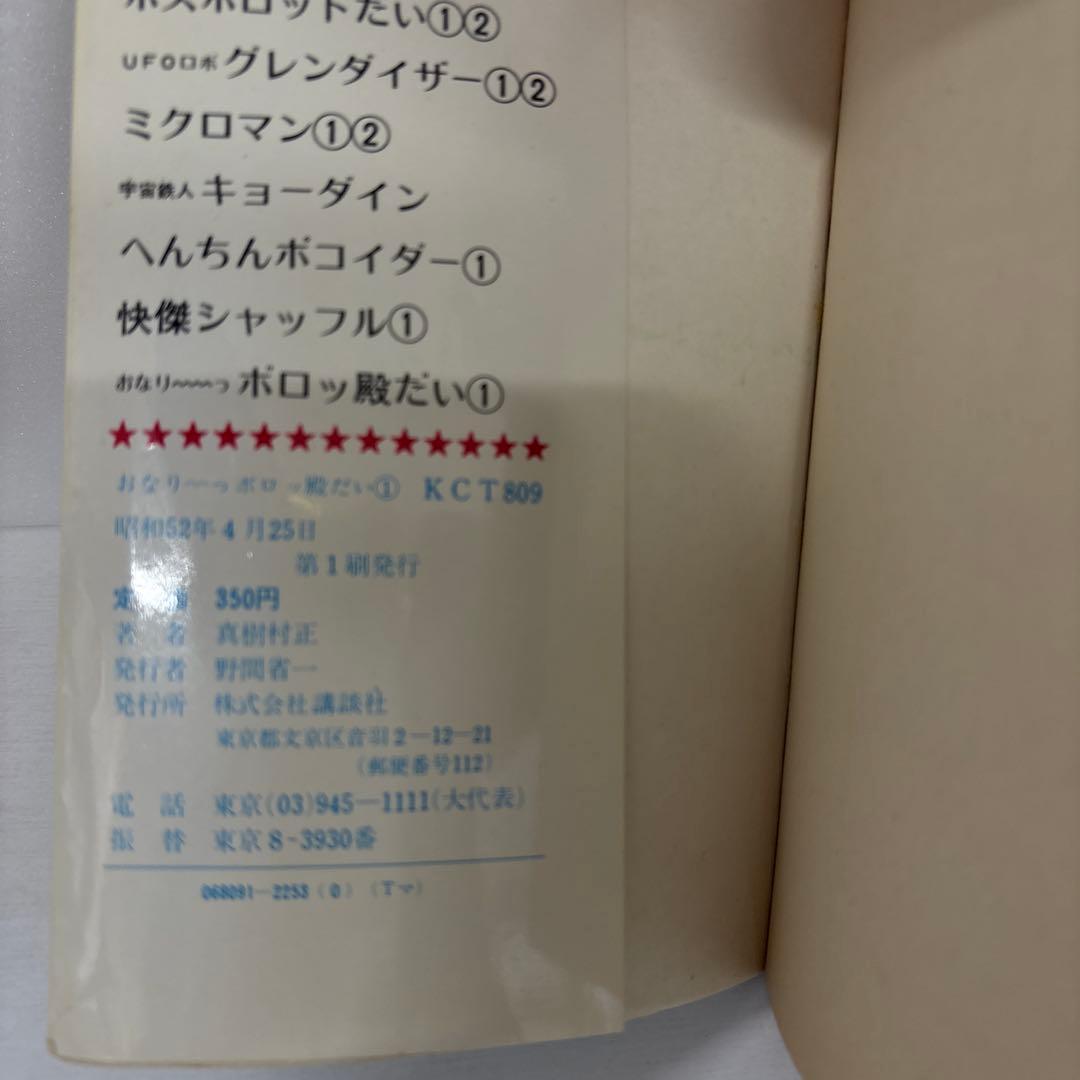 ボスボロットだい①②
UFOロボ グレンダイザー①②
ミクロマン①②
宇宙鉄人 キョーダイン
へんちんポコイダー①
快傑シャッフル①
おなり〜〜〜っ ボロッ殿だい①
★★★★★★★★★★★★★
おなり〜〜っボロッ殿だい① KCT809
昭和52年4月25日
第1刷発行
定価 350円
著者 真樹村正
発行者 野間省一
発行所 株式会社講談社
東京都文京区音羽2-12-21
(郵便番号112)
電話 東京(03)945-1111(大代表)
振替 東京8-3930番
068091-2253(0)(Tマ)